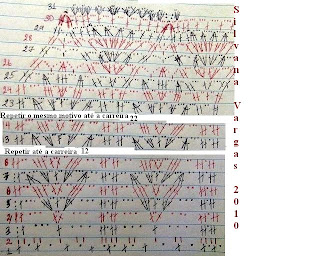 31
30
29
28
27
26
25
24
23
Repetir o mesmo motivo até a carreira 22
4
3
Repetir até a carreira 12
8
7
6
5
4
3
2
1
Silvana Vargas 2010